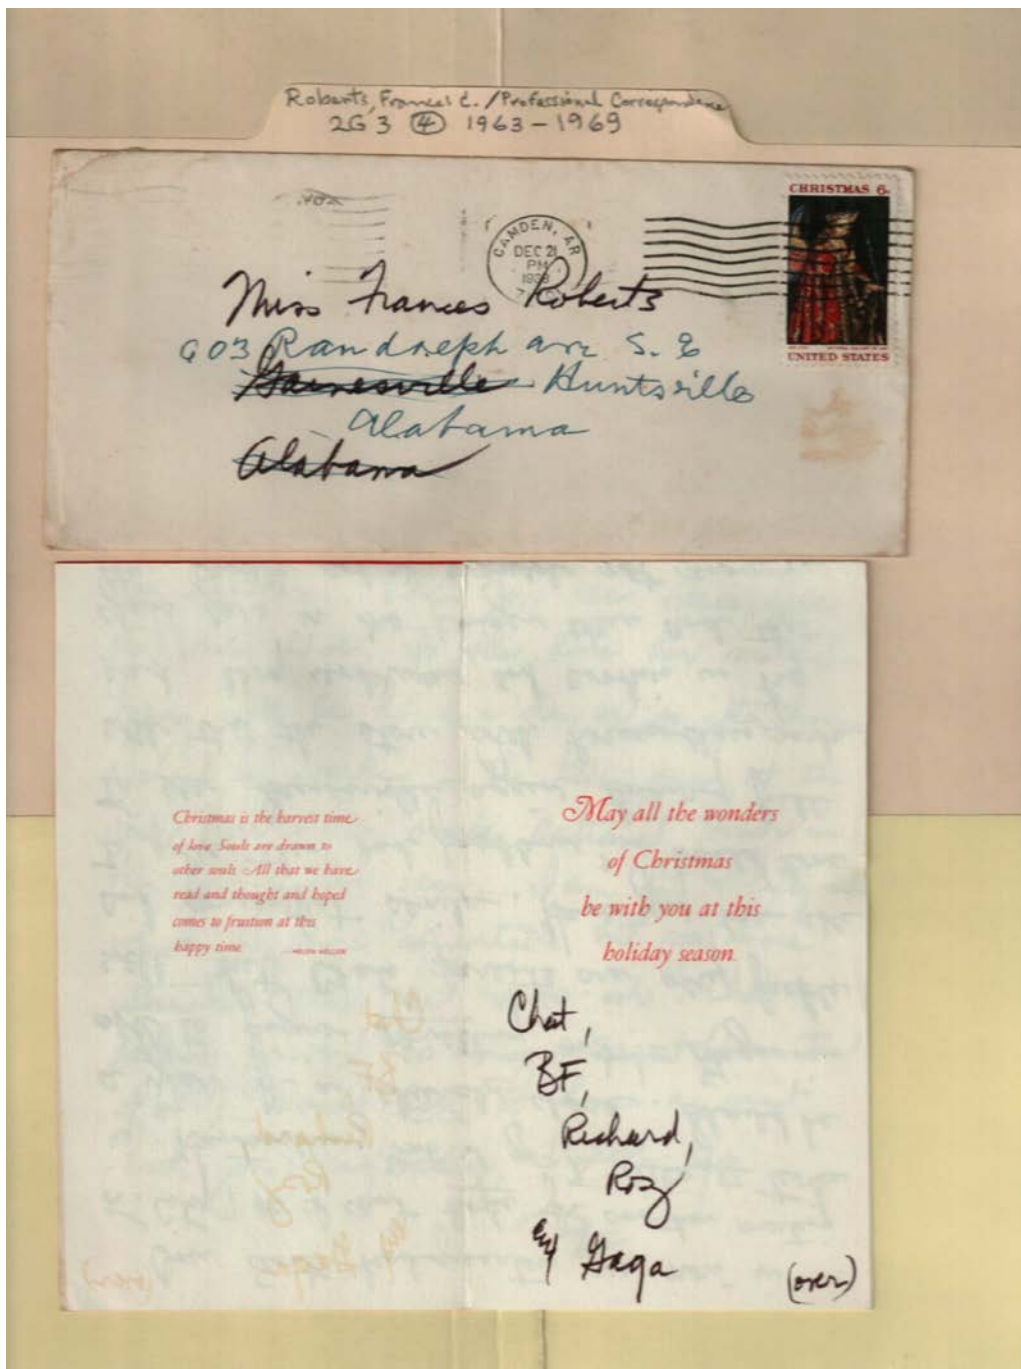 Roberts, Frances C. / Professional Correspondence
2G3 ④ 1963-1969
CHRISTMAS 6c
UNITED STATES
CAMDEN, AR
DEC 21
PM
Miss Frances Roberts
603 Randolph ave S. E
Gainesville Huntsville
Alabama
Alabama
Christmas is the harvest time
of love. Souls are drawn to
other souls. All that we have
read and thought and hoped
comes to fruition at this
happy time.
—HELEN KELLER
May all the wonders
of Christmas
be with you at this
holiday season.
Chet,
BF,
Richard,
Roz
& Gaga
(over)